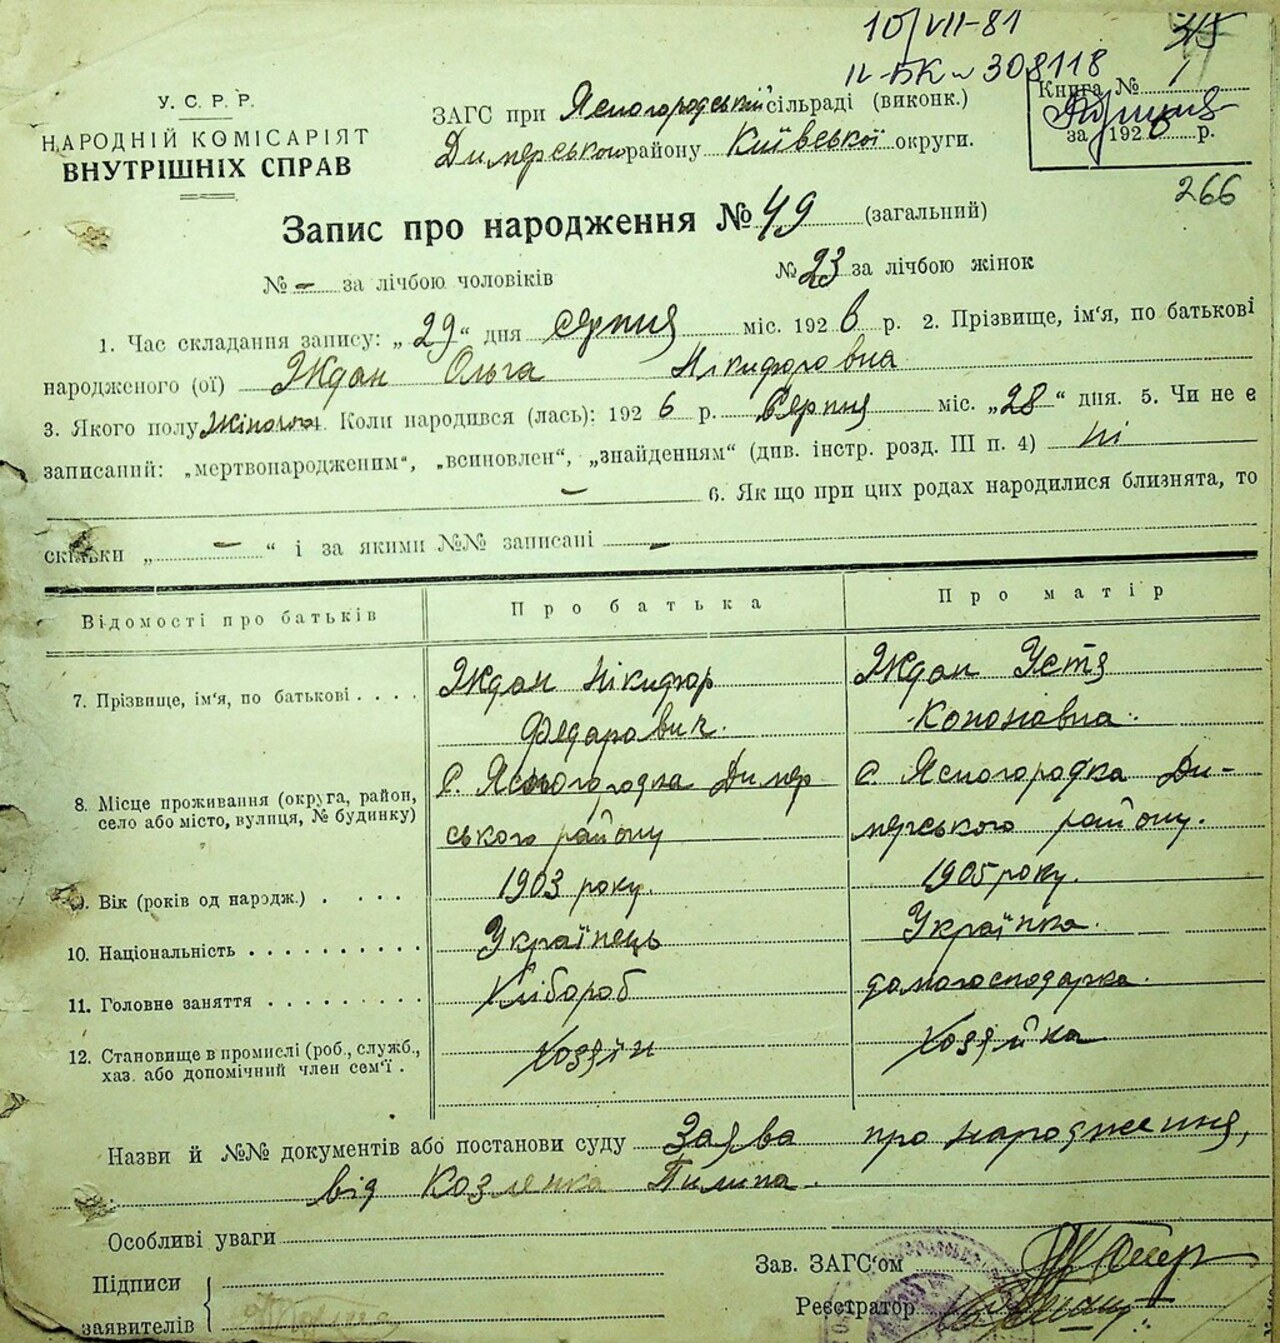 10/VII-81
315
II-БК № 308118
У. С. Р. Р.
НАРОДНІЙ КОМІСАРІЯТ
ВНУТРІШНІХ СПРАВ
ЗАГС при Ясногородській сільраді (виконк.)
Димерського району Київської округи.
Книга № 1
за 1926 р.
266
Запис про народження № 49 (загальний)
№ - за лічбою чоловіків № 23 за лічбою жінок
1. Час складання запису: „29“ дня серпня міс. 1926 р. 2. Прізвище, ім‘я, по батькові
народженого (ої) Ждан Ольга Нікифоровна
3. Якого полу жіночого 4. Коли народився (лась): 1926 р. Серпня міс. „28“ дня. 5. Чи не є
записаний: „мертвонародженим“, „всиновлен“, „знайденням“ (див. інстр. розд. III п. 4) ні
- 6. Як що при цих родах народилися близнята, то
скільки „ - “ і за якими №№ записані -
Відомості про батьків Про батька Про матір
7. Прізвище, ім‘я, по батькові . . . . Ждан Нікифор Ждан Устя
Федарович. Кононовна.
8. Місце проживання (округа, район, с. Ясногородка Димер с. Ясногородка Ди-
село або місто, вулиця, № будинку) ського району мерського району.
9. Вік (років од народж.) . . . . 1903 року. 1905 року.
10. Національність . . . . . . . . . . Українець Українка.
11. Головне заняття . . . . . . . . . Хлібороб домогосподарка.
12. Становище в промислі (роб., служб., Хозяїн Хозяйка
хаз. або допомічний член сем‘ї .
Назви й №№ документів або постанови суду Заява про народження,
від Козленка Пилипа.
Особливі уваги
Підписи
заявителів
Зав. ЗАГС‘ом
Реєстратор